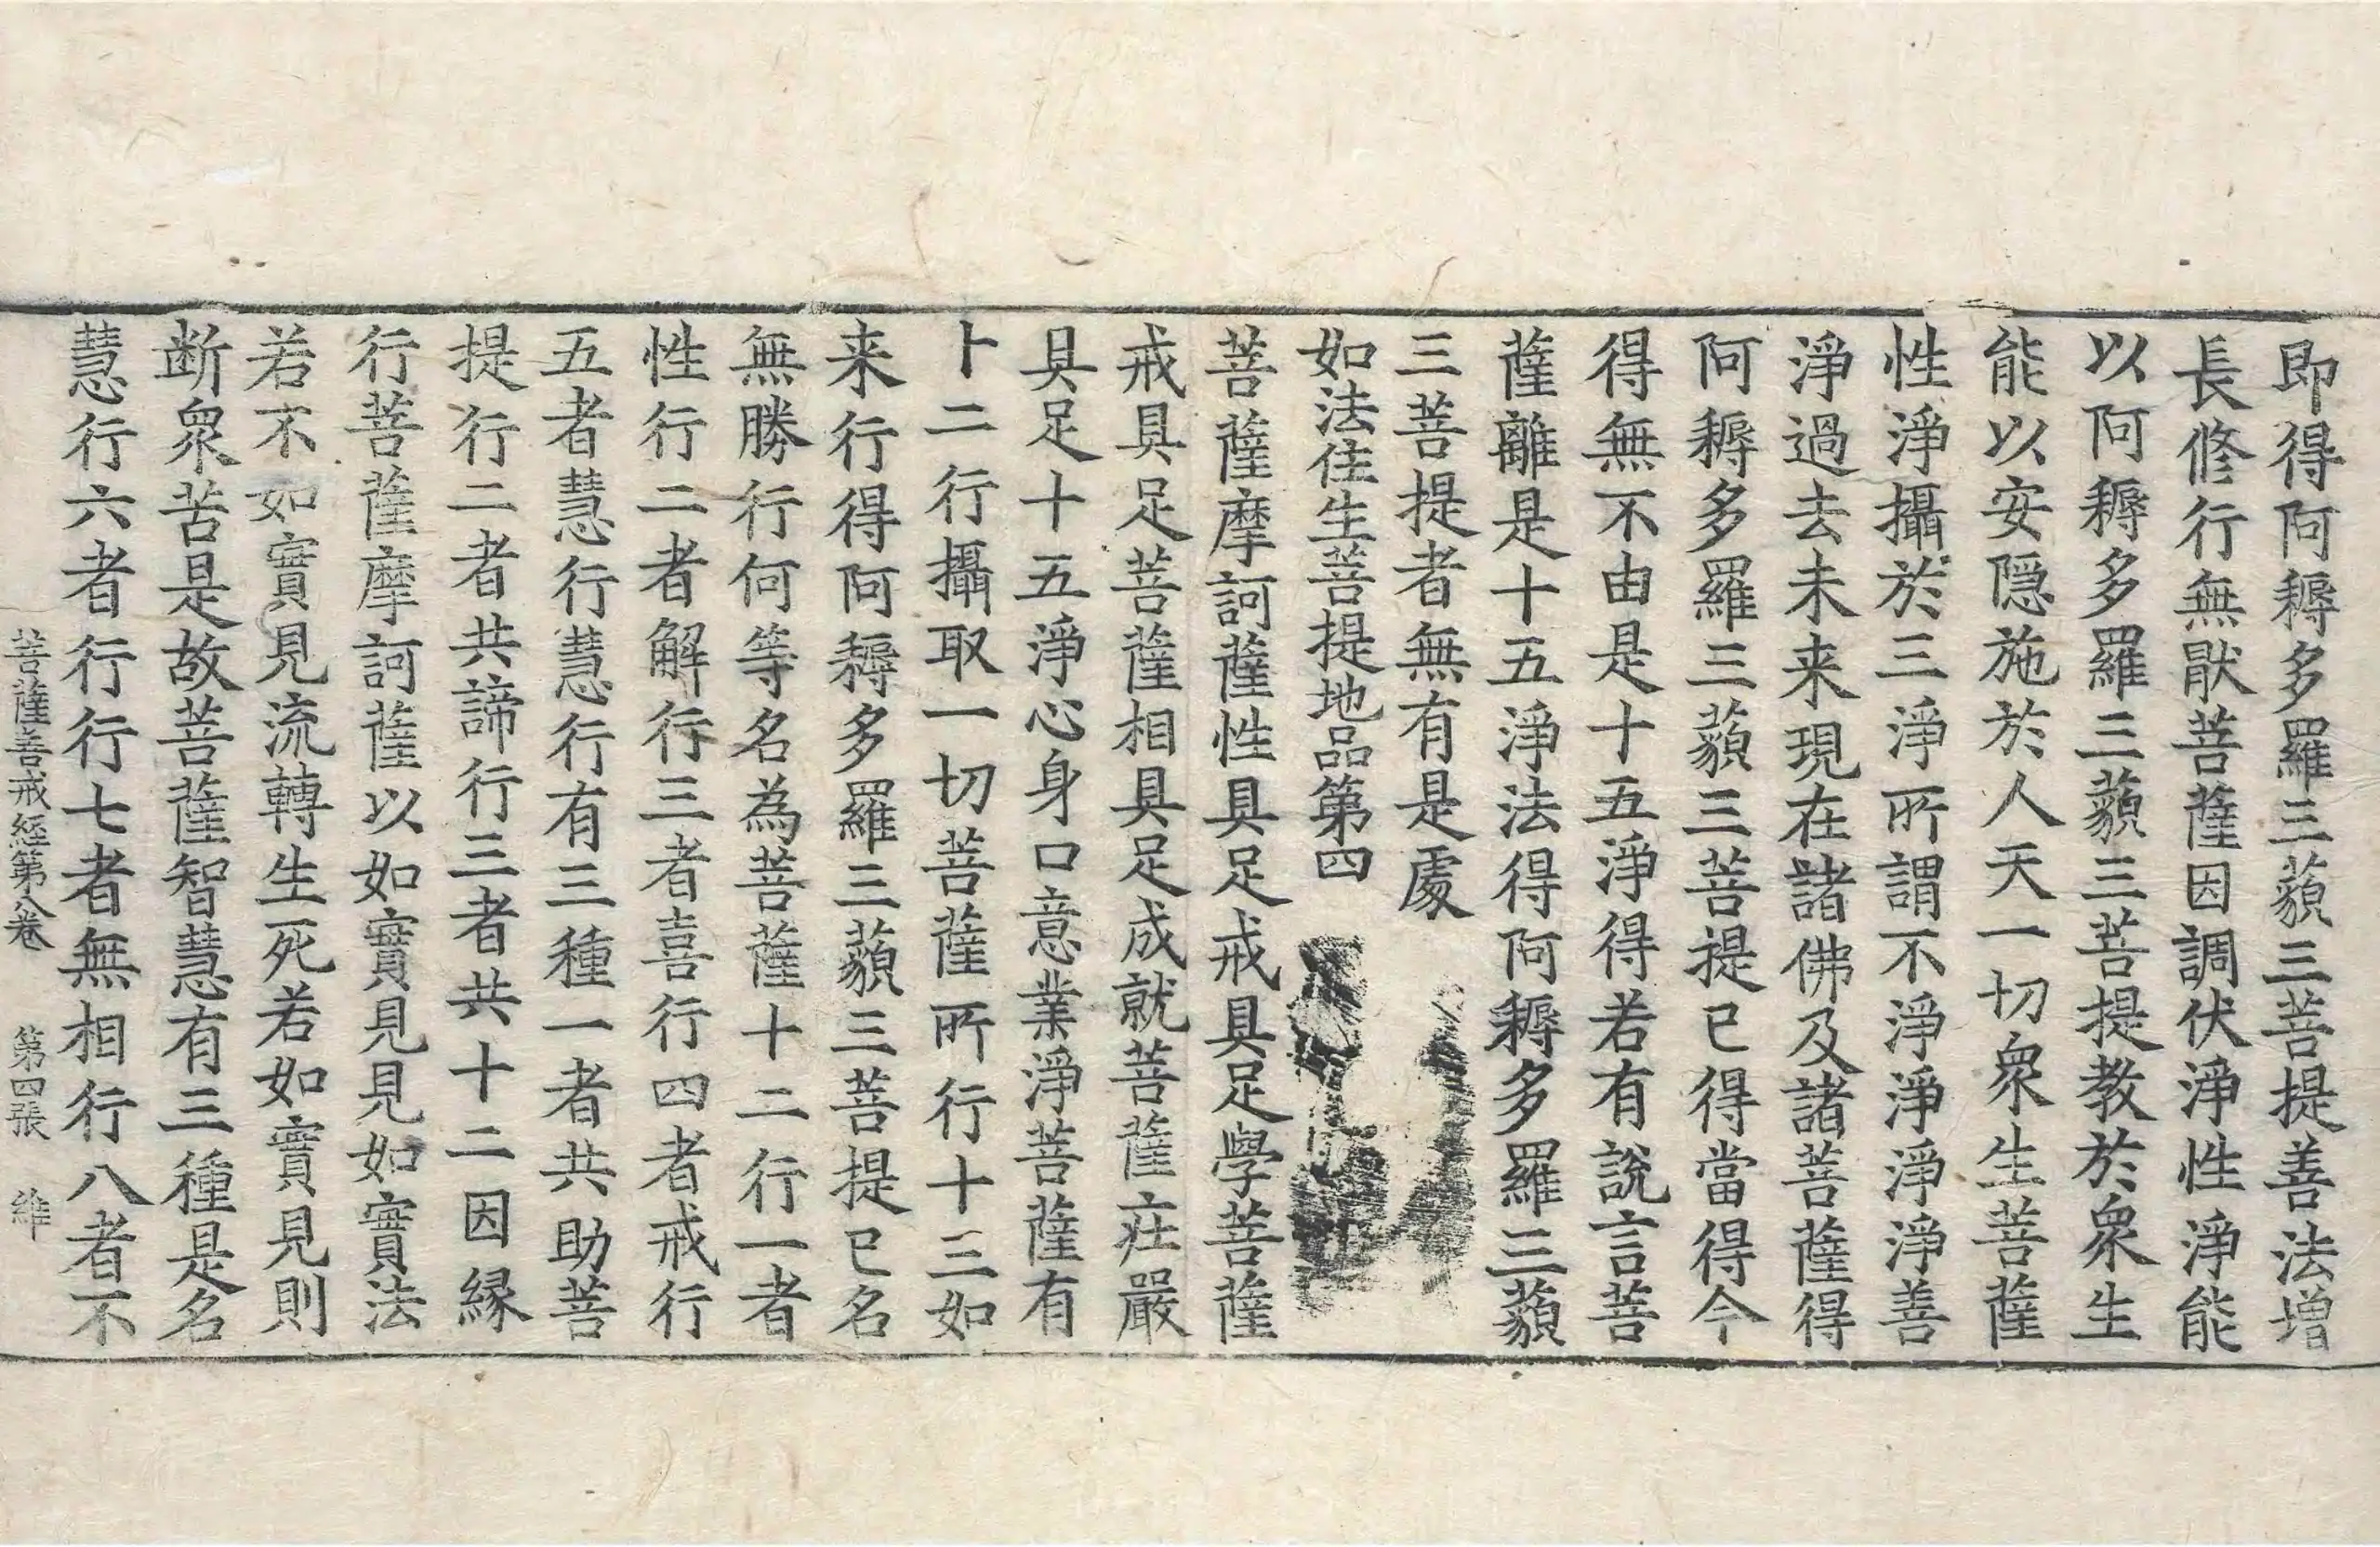 即得阿耨多羅三藐三菩提善法增
長修行無猒菩薩因調伏淨性淨能
以阿耨多羅三藐三菩提教於衆生
能以安隱施於人天一切衆生菩薩
性淨攝於三淨所謂不淨淨淨淨善
淨過去未来現在諸佛及諸菩薩得
阿耨多羅三藐三菩提已得當得今
得無不由是十五淨得若有說言菩
薩離是十五淨法得阿耨多羅三藐
三菩提者無有是處
如法住生菩提地品第四
菩薩摩訶薩性具足戒具足學菩薩
戒具足菩薩相具足成就菩薩莊嚴
具足十五淨心身口意業淨菩薩有
十二行攝取一切菩薩所行十三如
来行得阿耨多羅三藐三菩提已名
無勝行何等名為菩薩十二行一者
性行二者解行三者喜行四者戒行
五者慧行慧行有三種一者共助菩
提行二者共諦行三者共十二因緣
行菩薩摩訶薩以如實見見如實法
若不如實見流轉生死若如實見則
断衆苦是故菩薩智慧有三種是名
慧行六者行行七者無相行八者不
菩薩善戒経第八卷 第四張 維